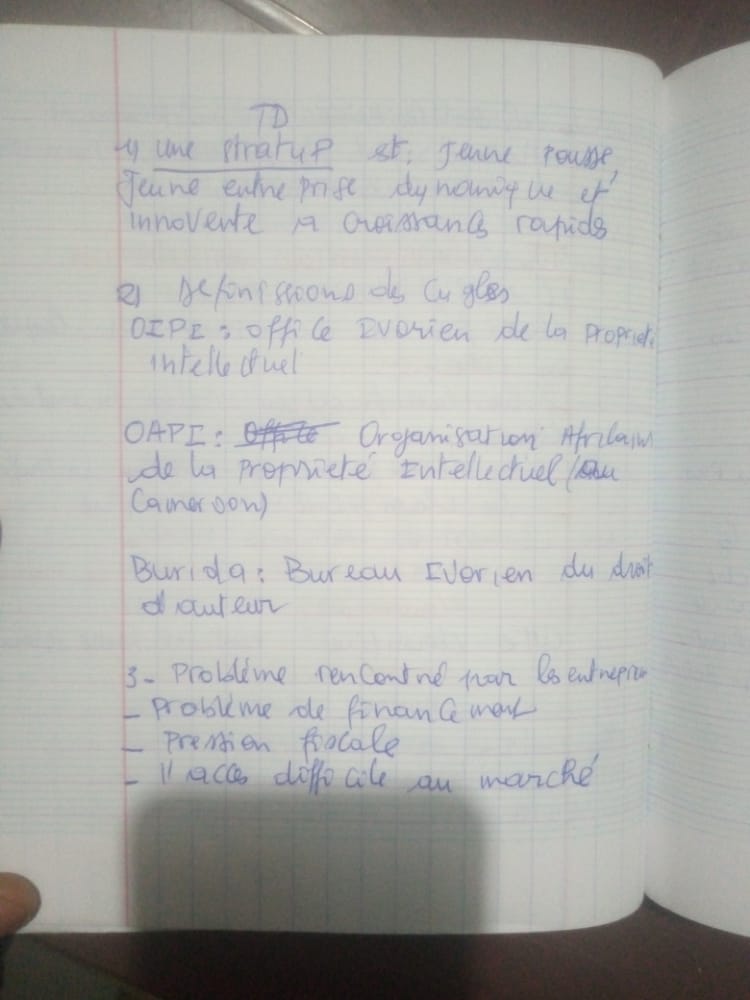 TD
1) une stratup est, jeune pousse,
Jeune entreprise dynamique et
innovente a croissance rapids
2) Definissions des Cugles
OIPI : office Ivorien de la Propriet
intellectuel
OAPI : Office Organisation Africain
de la propriété Intellectuel (Au
Cameroon)
Burida : Bureau Ivorien du droit
d'auteur
3- Problème rencontré par les entrepris
- Problème de financement
- Pression fiscale
- l'acces difficile au marché